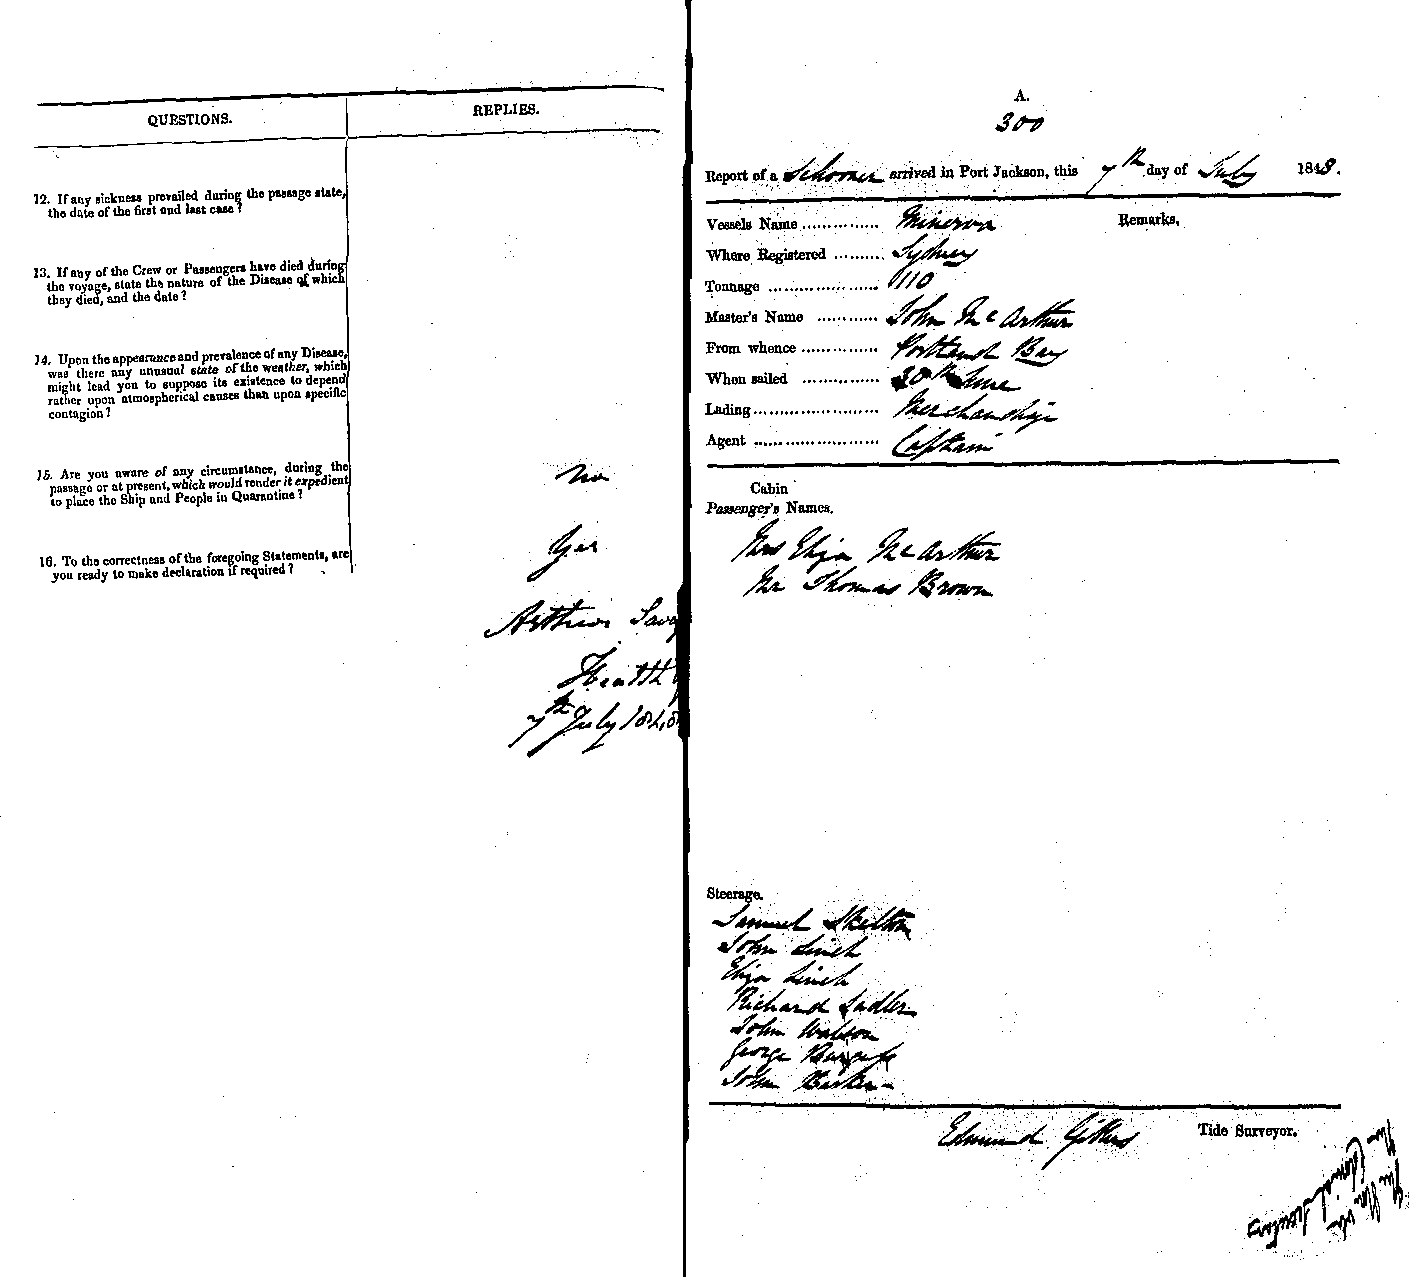 QUESTIONS.
REPLIES.
12. If any sickness prevailed during the passage state,
the date of the first and last case?
13. If any of the Crew or Passengers have died during
the voyage, state the nature of the Disease of which
they died, and the date?
14. Upon the appearance and prevalence of any Disease,
was there any unusual state of the weather, which
might lead you to suppose its existence to depend
rather upon atmospherical causes than upon specific
contagion?
15. Are you aware of any circumstance, during the
passage or at present, which would render it expedient
to place the Ship and People in Quarantine?
No
16. To the correctness of the foregoing Statements, are
you ready to make declaration if required?
Yes
Arthur Sava
Health
7th July 1848
A.
300
Report of a Schooner arrived in Port Jackson, this 7th day of July 1848.
Vessels Name ............... Minerva
Remarks.
Where Registered ......... Sydney
Tonnage ..................... 110
Master's Name ............ John McArthur
From whence ............... Portland Bay
When sailed ............... 30th June
Lading........................ Merchandize
Agent ........................ Captain
Cabin
Passenger's Names.
Mrs Eliza McArthur
Mr Thomas Brown
Steerage.
Samuel Skelton
John Linch
Eliza Linch
Richard Sadler
John Watson
George Burgess
John Barker
Edmund Gibbes Tide Surveyor.